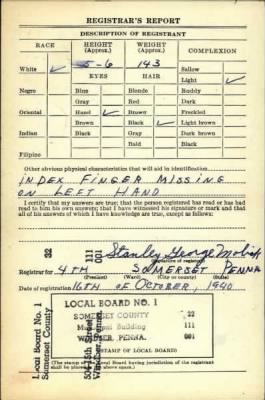 REGISTRAR'S REPORT
DESCRIPTION OF REGISTRANT
RACE HEIGHT (Approx.) WEIGHT (Approx.) COMPLEXION
White ✓ 5-6 143 Sallow
EYES HAIR Light ✓
Negro Blue Blonde Ruddy
Gray Red Dark
Oriental Hazel ✓ Brown Freckled
Brown Black ✓ Light brown
Indian Black Gray Dark brown
Bald Black
Filipino
Other obvious physical characteristics that will aid in identification
INDEX FINGER MISSING
ON LEFT HAND
I certify that my answers are true; that the person registered has read or has had
read to him his own answers; that I have witnessed his signature or mark and that
all of his answers of which I have knowledge are true, except as follows:
32
111
Stanley George
Registrar for 4TH SOMERSET PENNA
(Precinct) (Ward) (City or county) (State)
Date of registration 16TH OF OCTOBER, 1940
Local Board No. 1
Somerset County
LOCAL BOARD NO. 1
SOMERSET COUNTY 32
Municipal Building 111
WINDBER, PENNA. 001
STAMP OF LOCAL BOARD)
(The stamp of the Local Board having jurisdiction of the registrant
shall be placed in the above space.)